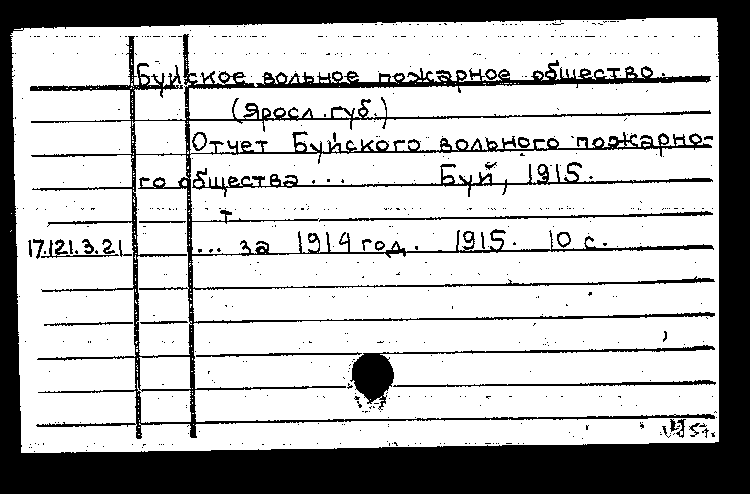 Буйское вольное пожарное общество.
(Яросл. губ.)
Отчет Буйского вольного пожарно-
го общества ... Буй, 1915.
т.
17.121.3.21 ... за 1914 год. 1915. 10 с.
57.